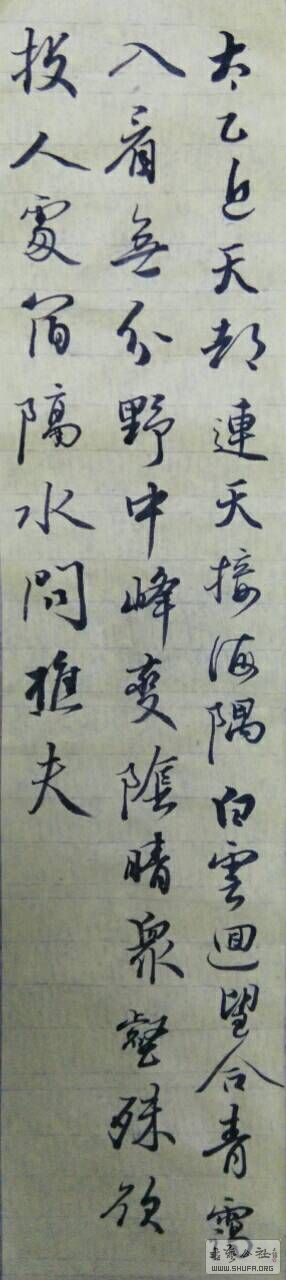 太乙近天都連天接海隅白雲迴望合青靄
入看無分野中峰變陰晴眾壑殊欲
投人處宿隔水問樵夫
WWW.SHUFA.ORG